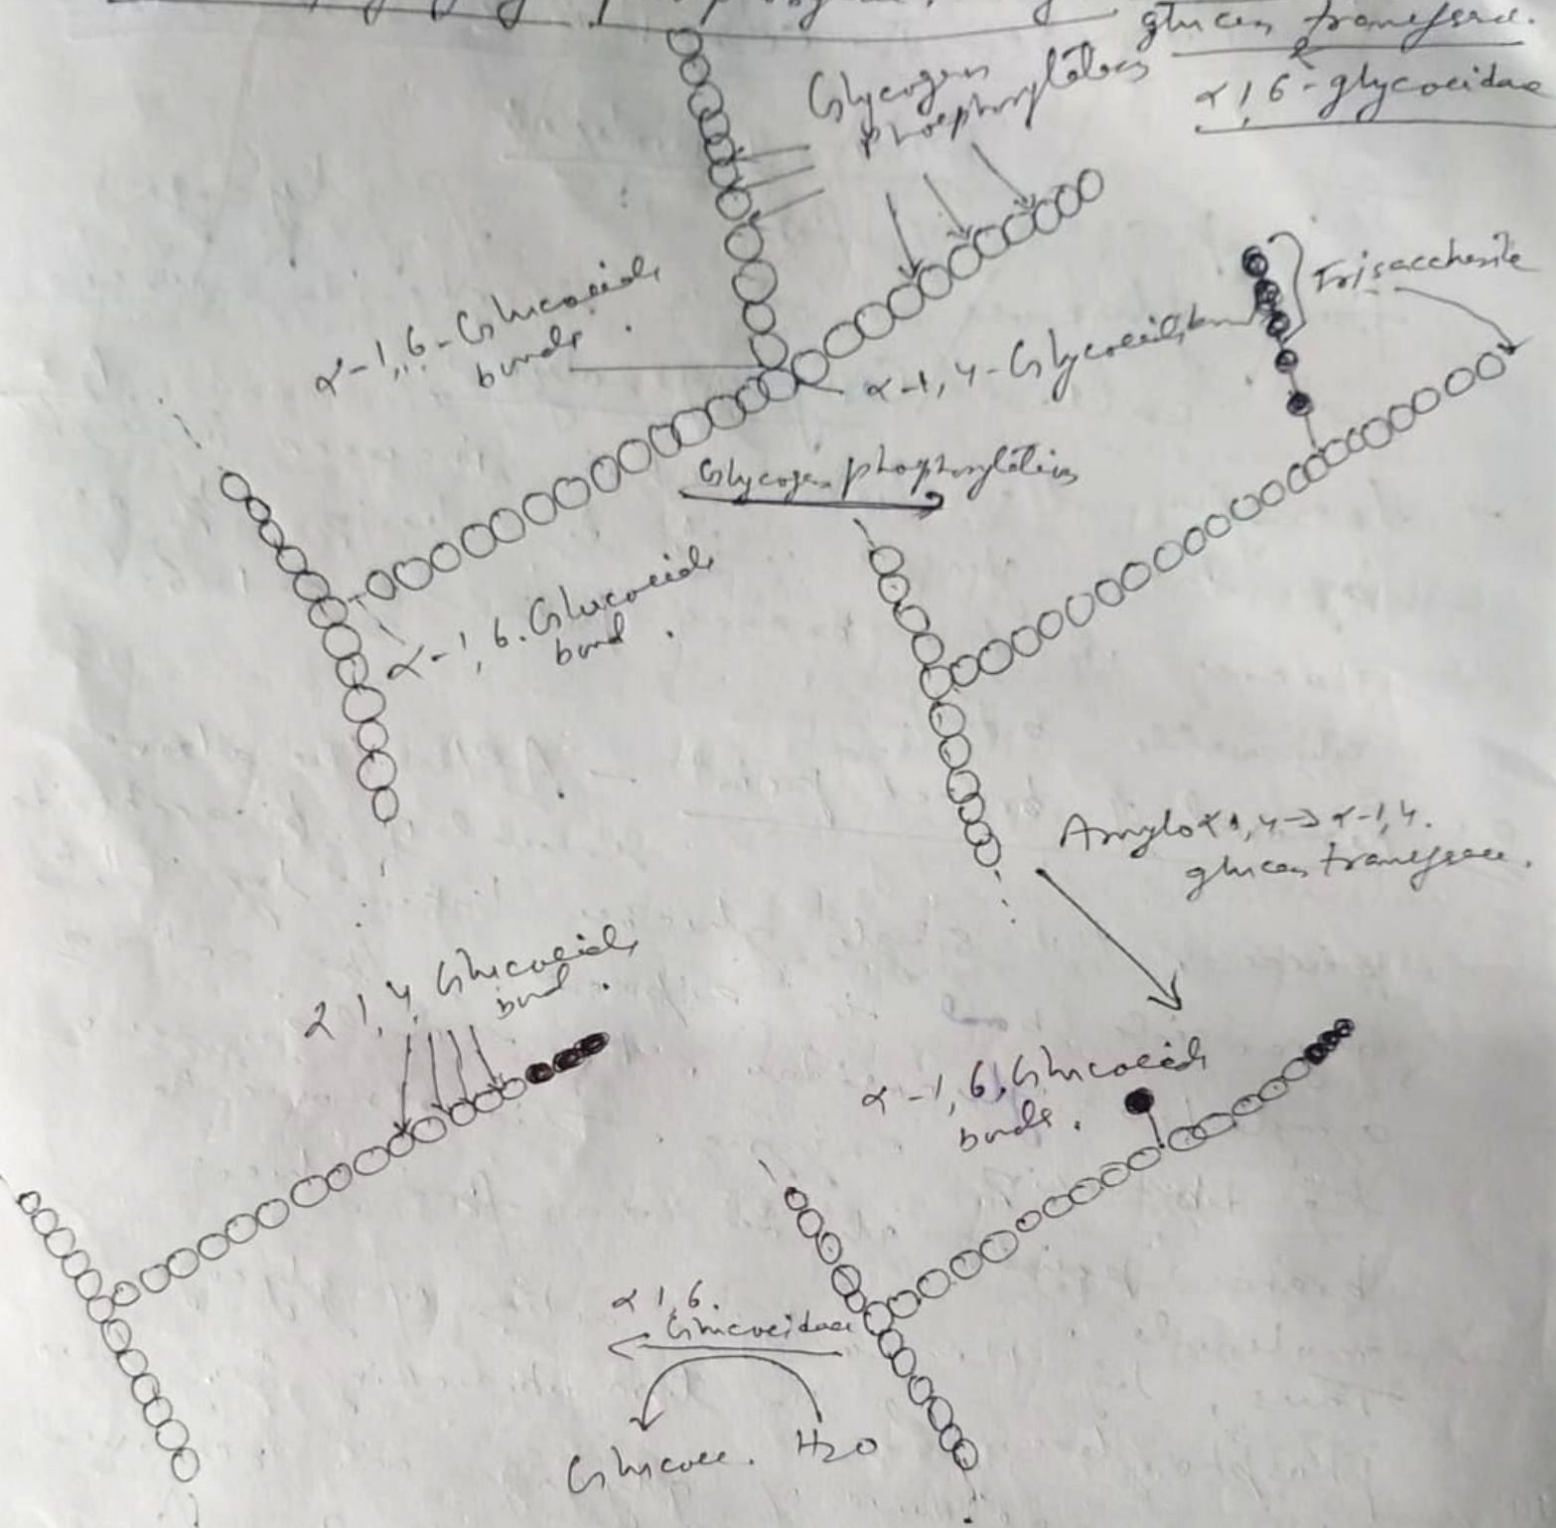 glucan transferase.
&
α 1,6-glycosidase
Glycogen
phosphorylation
Trisaccharide
α-1,6-Glucosidic
bonds.
α-1,4-Glycosidic
Glycogen phosphorylation
α-1,6.Glucosidic
bond.
Amylo α 1,4→α-1,4.
glucan transferase.
α 1,4 Glucosidic
bond.
α-1,6,Glucosidic
bonds.
α 1,6.
Glucosidase
Glucose. H2O